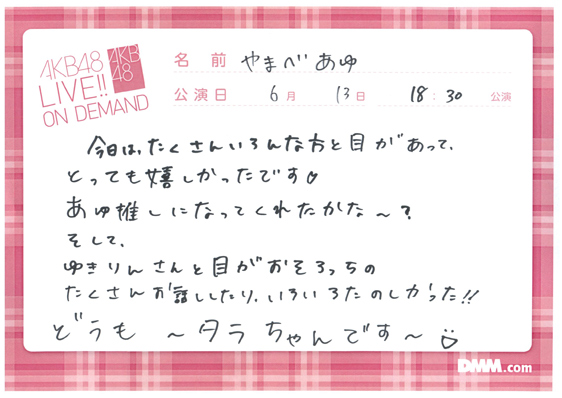 AKB48
LIVE!!
ON DEMAND
AKB
48
名 前 やまべあゆ
公演日 6月 13日 18:30 公演
今日は、たくさんいろんな方と目があって、
とっても嬉しかったです♡
あゆ推しになってくれたかな〜?
そして、
ゆきりんさんと目がおそろっちの
たくさんお話ししたり、いろいろたのしかった!!
どうも 〜タラちゃんです〜
DMM.com